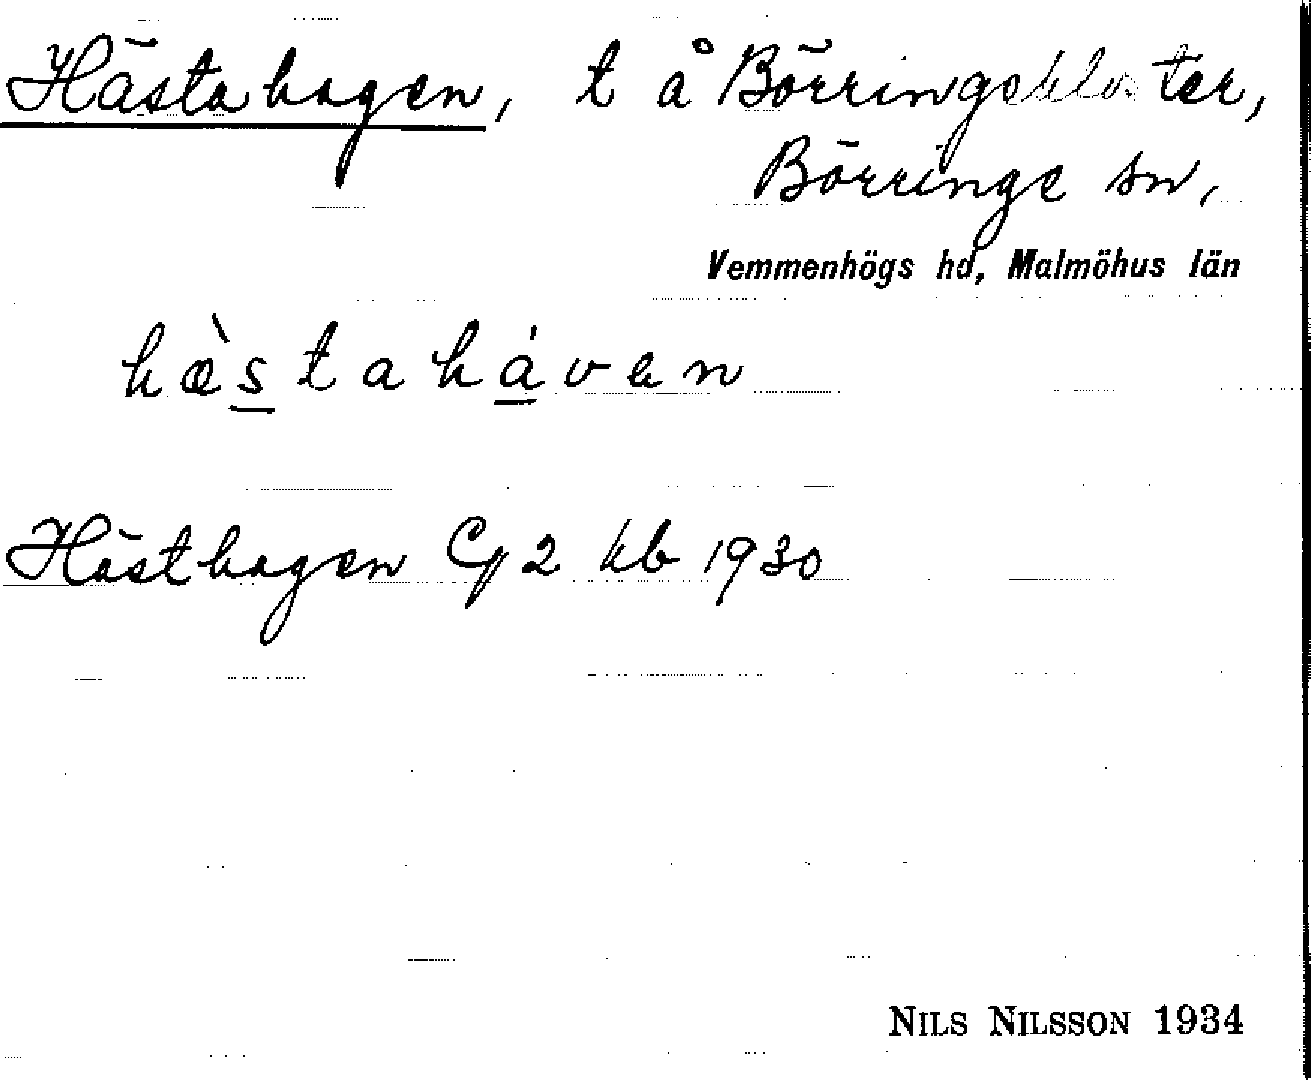 Hästahagen, t å Börringekloster,
Börringe sn,
Vemmenhögs hd, Malmöhus län
hæ̀staháven
Hästhagen Cf 2 kb 1930
NILS NILSSON 1934